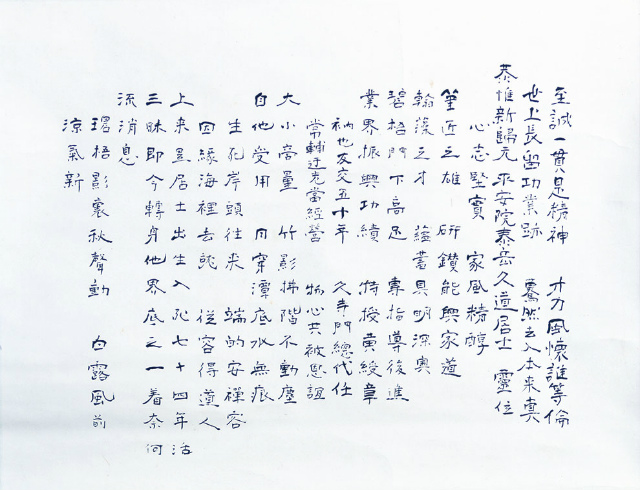 至誠一貫是精神 才力風懷誰等倫
世上長留功業跡 驀然去入本来真
恭惟新歸元 平安院泰岳久道居士 靈位
心志堅實 家風精醇
筆匠之雄 研鑽能興家道
翰操之才 蘊蓄具明深奥
碧梧門下高足 專指導後進
業界振興功績 特授黄綬章
衲也友交五十年 久寺門總代任
常輔迂老當經營 物心共被恩誼
大小商量 竹影拂階不動塵
自他受用 月穿潭底水無痕
生死岸頭往来 端的安禪容
因緣海裡去就 従容得道人
上来是居士出生入死七十四年活
三昧即今轉身他界底之一着奈何
流消息
環梧影裏秋聲動 白露風前
涼氣新